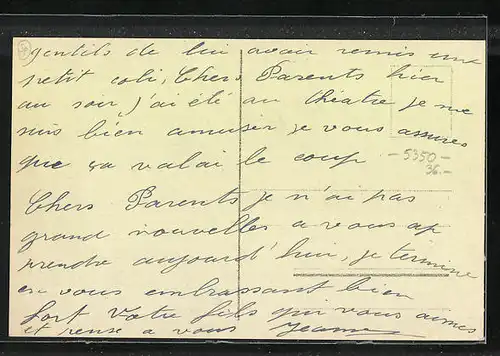 gentils de lui avoir remis un
petit coli, Chers Parents hier
au soir j'ai été au théatre je me
suis bien amuser je vous assures
que sa valai le coup
- 5350 -
36.-
Chers Parents je n'ai pas
grand nouvelles a vous ap
prendre aujourd'hui, je termine
en vous embrassant bien
fort Votre fils qui vous aimes
et pense a vous